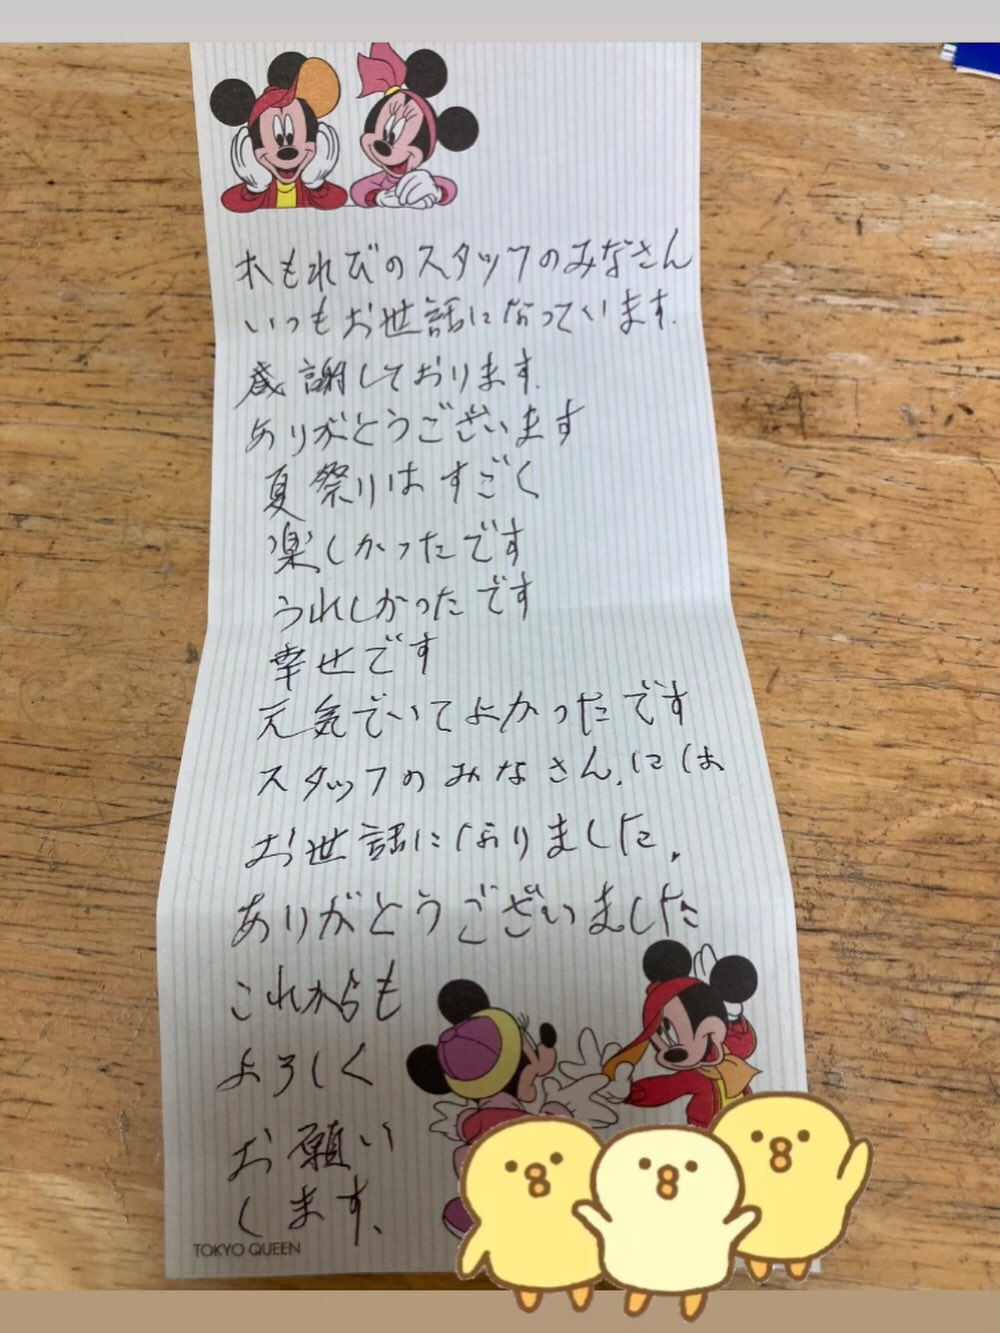 木もれびのスタッフのみなさん
いつもお世話になっています.
感謝しております.
ありがとうございます
夏祭りはすごく
楽しかったです
うれしかったです
幸せです
元気でいてよかったです
スタッフのみなさん.には
お世話になりました.
ありがとうございました
これからも
よろしく
お願い
します、
TOKYO QUEEN